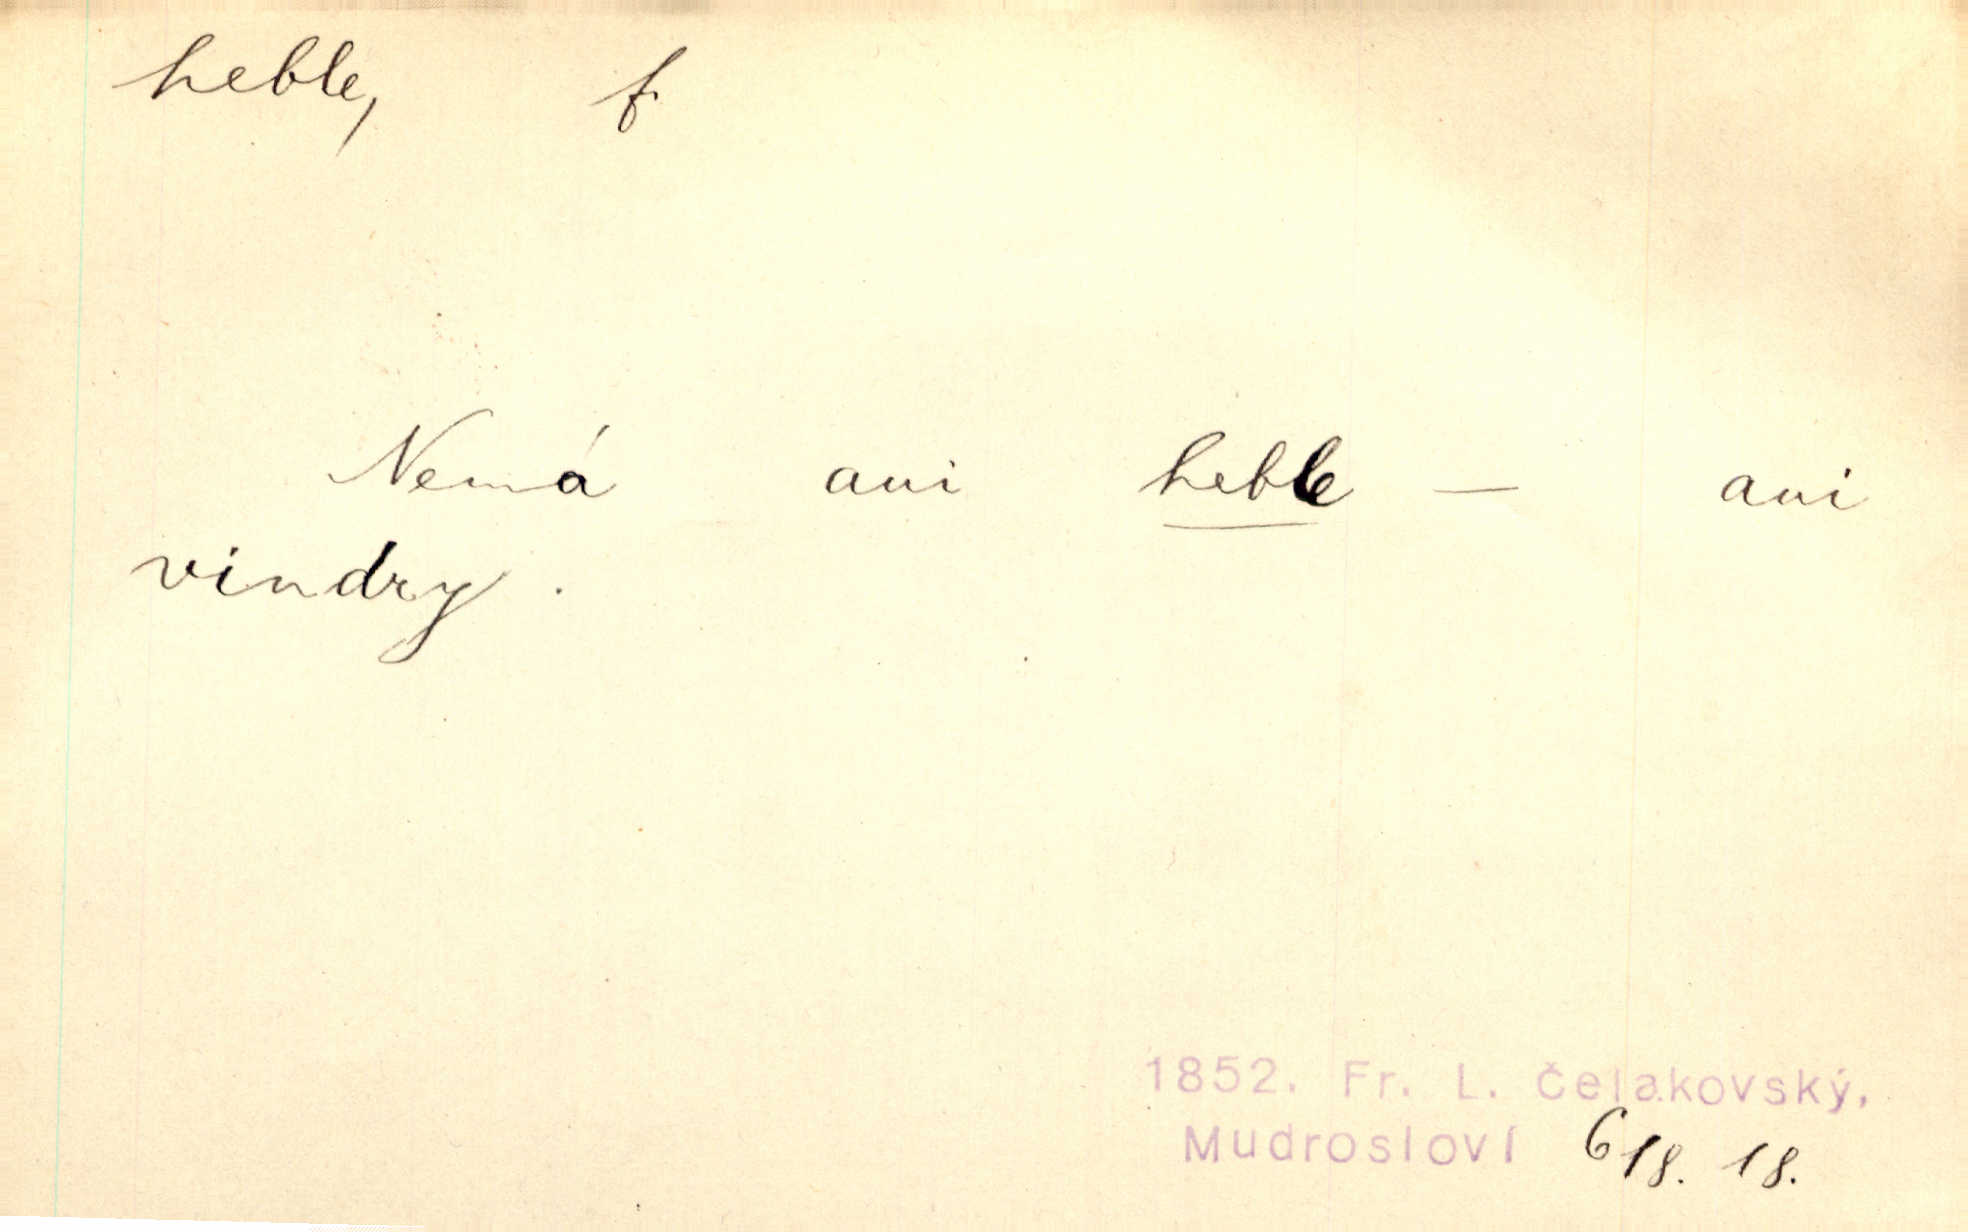 heble, f
Nemá ani heble — ani
vindry.
1852. Fr. L. Čelakovský,
Mudrosloví 618. 18.